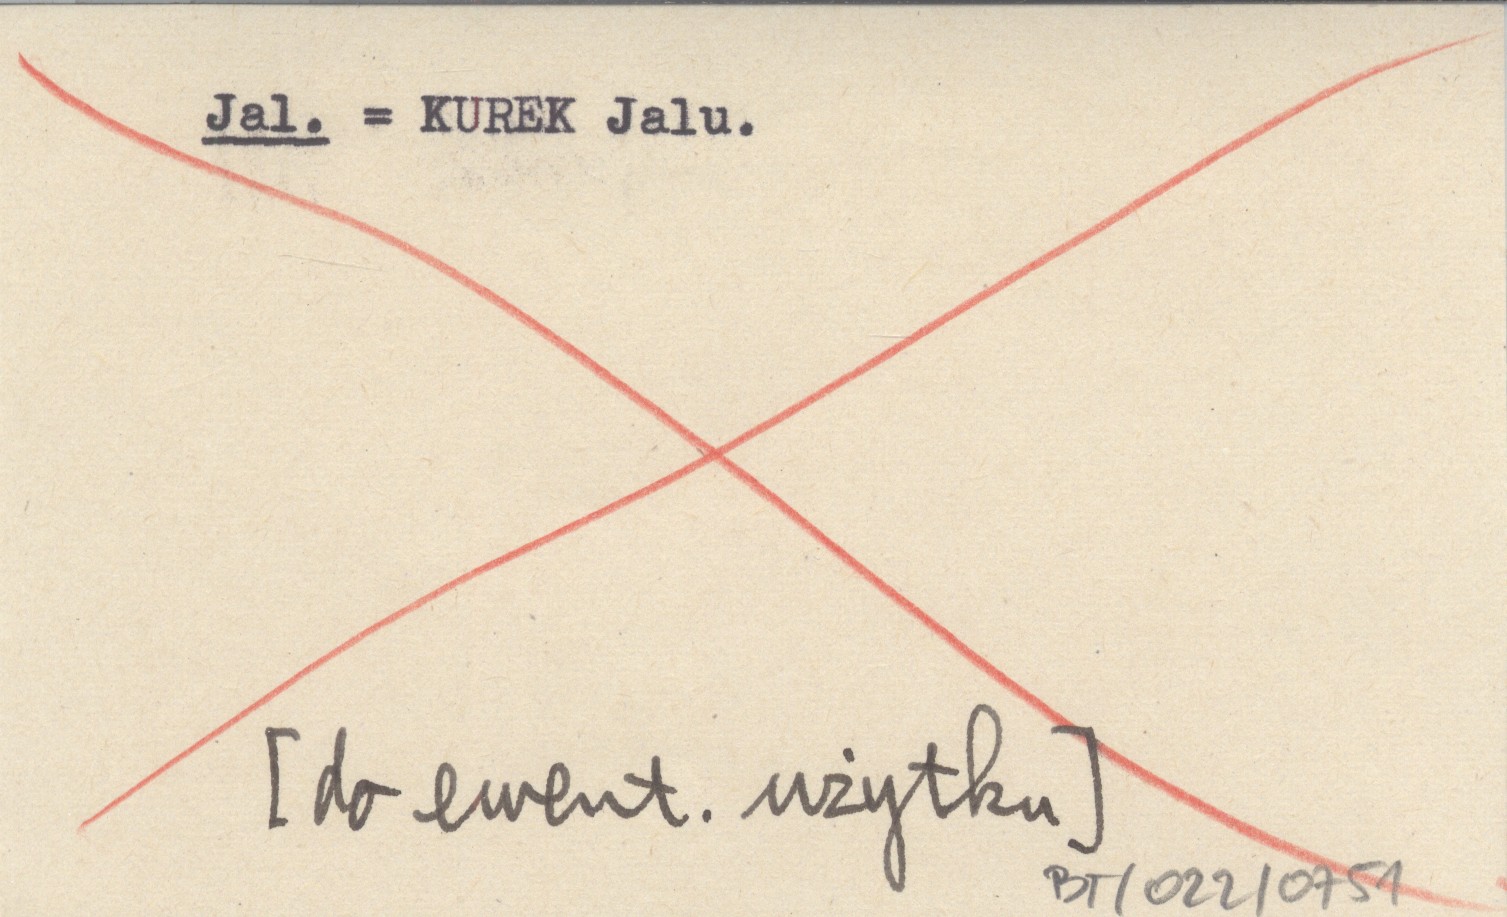 Jal. = KUREK Jalu.
[do ewent. użytku]
BT/022/0751